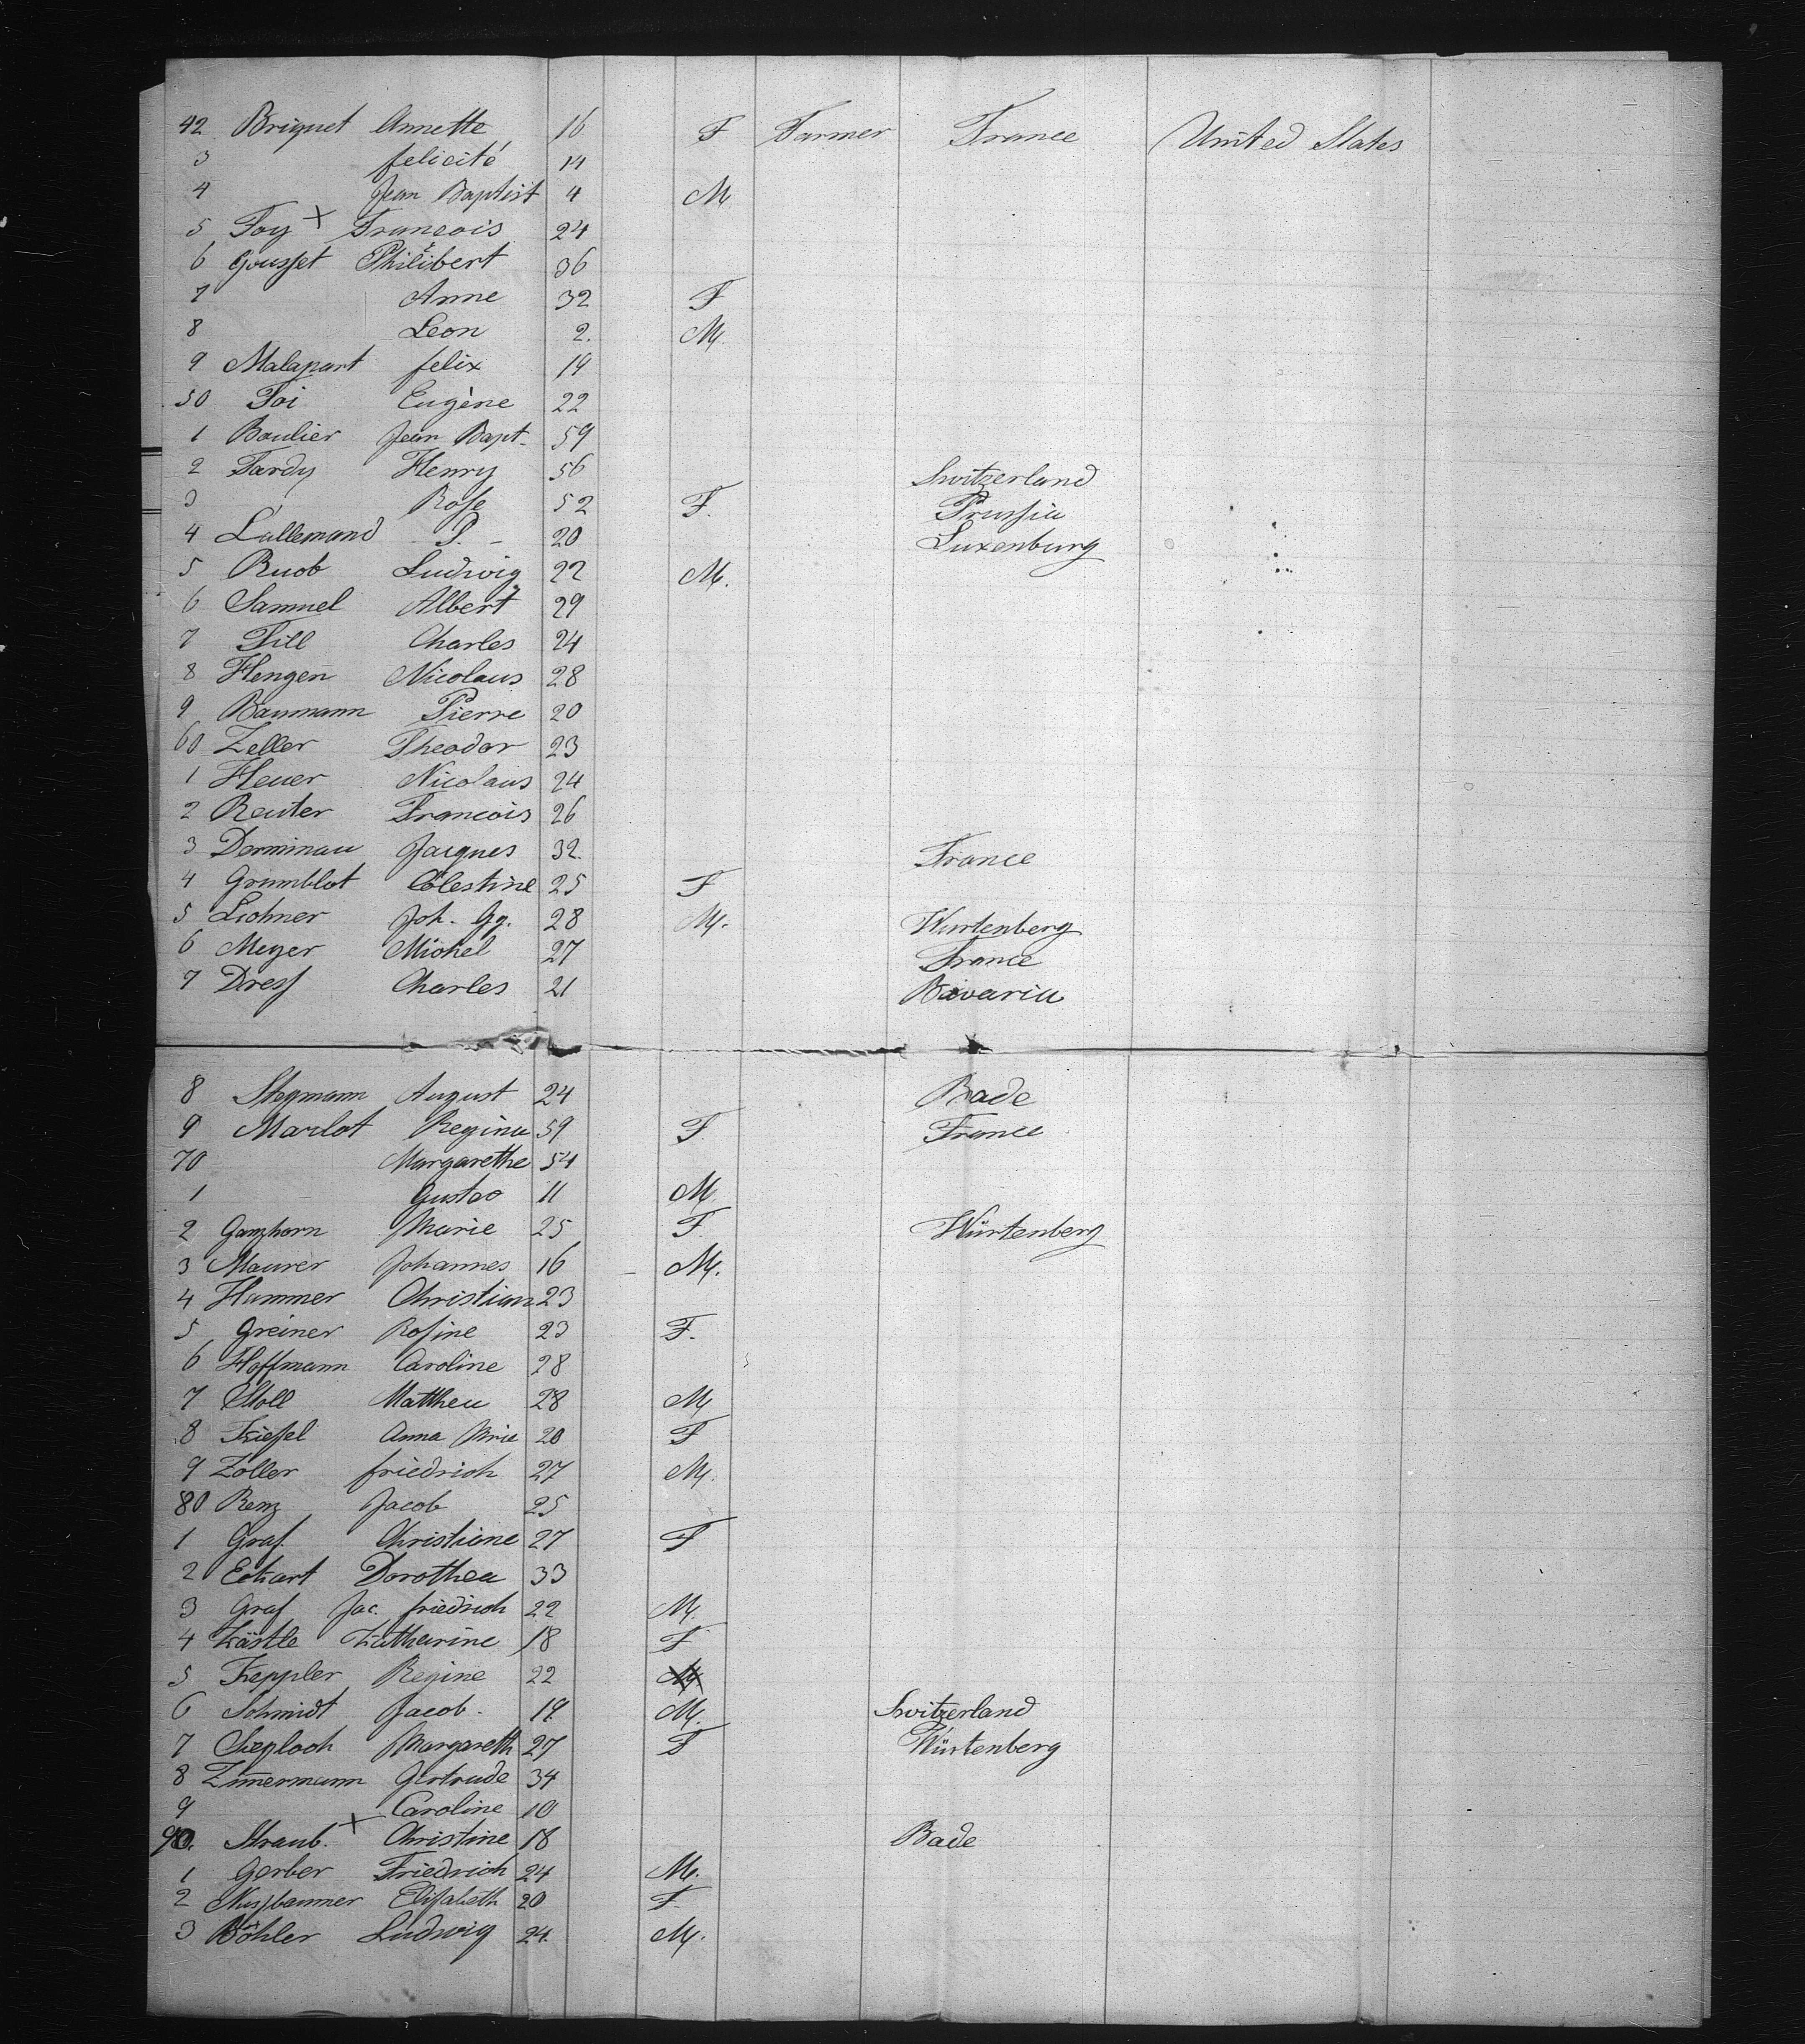 42 Briquet Annette 16 F Farmer France United States
3 felicité 14
4 Jean Baptist 4 M
5 Foy x Francois 24
6 Gousset Philibert 36
7 Anne 32 F
8 Leon 2. M.
9 Malapart felix 19
50 Foi Eugène 22
1 Boulier Jean Bapt. 59
2 Tardy Henry 56 Switzerland
3 Rose 52 F. Prussia
4 Lallemand P. - 20 Luxenburg
5 Ruob Ludwig 22 M.
6 Samuel Albert 29
7 Till Charles 24
8 Hengen Nicolaus 28
9 Baumann Pierre 20
60 Zeller Theodor 23
1 Heuer Nicolaus 24
2 Reuter Francois 26
3 Derminau Jacques 32. France
4 Grumblot Cölestine 25 F
5 Lichner Joh. Gg. 28 M. Wurtenberg
6 Meyer Michel 27 France
7 Dress Charles 21 Bavaria
8 Stegmann August 24 Bade
9 Marlot Regina 59 F. France
70 Margarethe 54
1 Gustav 11 M.
2 Ganzhorn Marie 25 F. Würtenberg
3 Maurer Johannes 16 M.
4 Hammer Christian 23
5 Greiner Rosine 23 F.
6 Hoffmann Caroline 28
7 Stoll Mattheu 28 M
8 Kiessel Anna Mrie 20 F
9 Zoller friedrich 27 M.
80 Renz Jacob 25
1 Graf. Christiane 27 F
2 Eckart Dorothea 33
3 Graf Jac. friedrich 22 M.
4 Kästle Katharine 18 F
5 Keppler Regine 22 M
6 Schmidt Jacob. 19. M. Switzerland
7 Margareth 27 F Würtenberg
8 Zimmermann Gertrude 34
9 Caroline 10
90. Straub. x Christine 18 Bade
1 Gerber Friedrich 24 M.
2 Nussbaumer Elisabeth 20 F.
3 Böhler Ludwig 24. M.